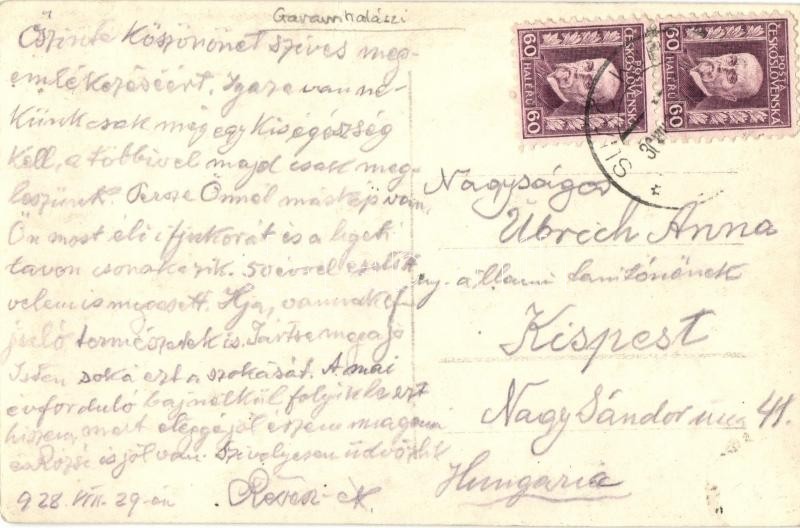 Garamhalászi
Őszinte köszönönet szives meg-
emlékezéséért. Igaza van ne-
künk csak még egy kis égészség
kell, a többivel majd csak meg-
leszünk. Persze Önnél máskép van,
Ön most éli ifjukorát és a ligeti
tavon csonakezik. 50 évvel ezelőtt
velem is megesett. Hja, vannak 
 természetek is. Tartsa meg a jó
Isten soká ezt a szokását. A mai
évforduló baj nélkül folyik le ezt
hiszem, mert eléggé jól érzem magam
és Rózsi is jól van. Szívélyesen üdvözlik
928. VIII. 29-én
POSTA
ČESKOSLOVENSKÁ
60 HALÉŘŮ 60
POSTA
ČESKOSLOVENSKÁ
60 HALÉŘŮ 60
Nagyságos
Übrich Anna
ny. állami tanítónőnek
Kispest
Nagy Sándor ucca 41.
Hungaria